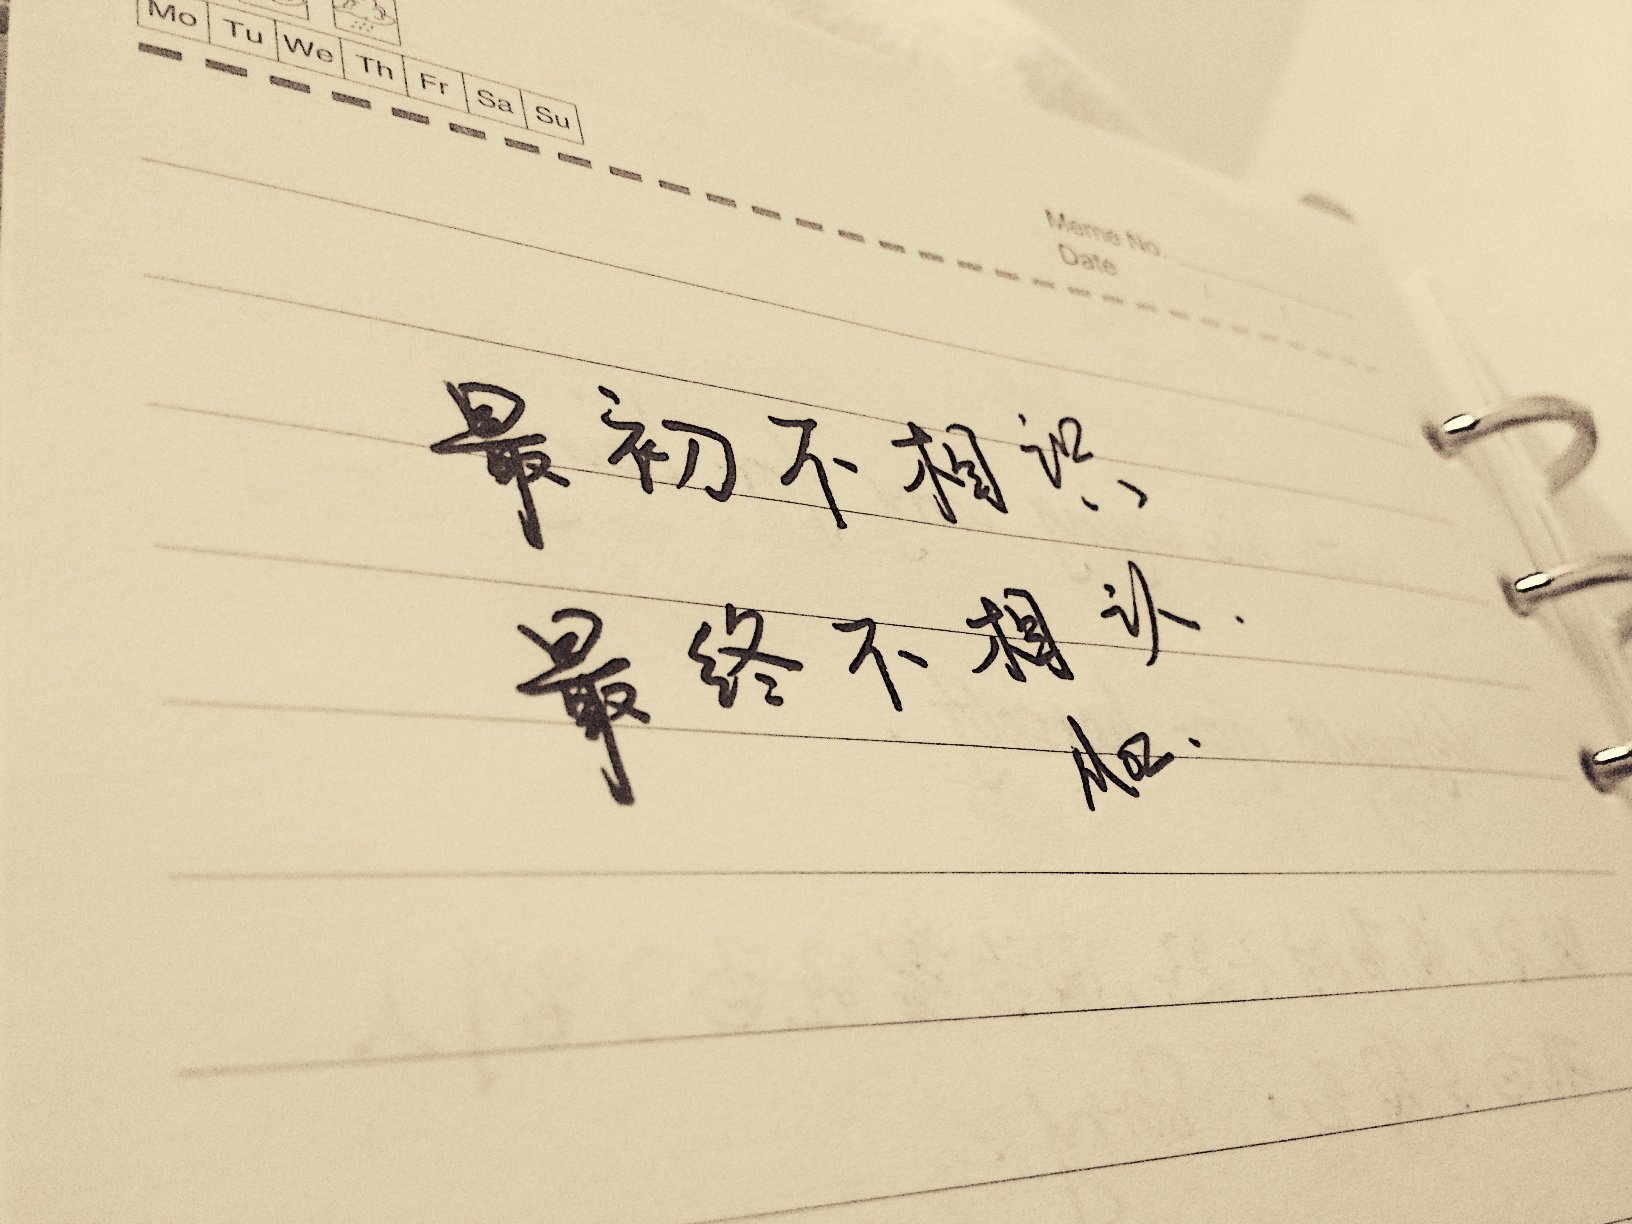 Mo Tu We Th Fr Sa Su
Meme No.
Date
最初不相识
最终不相认.